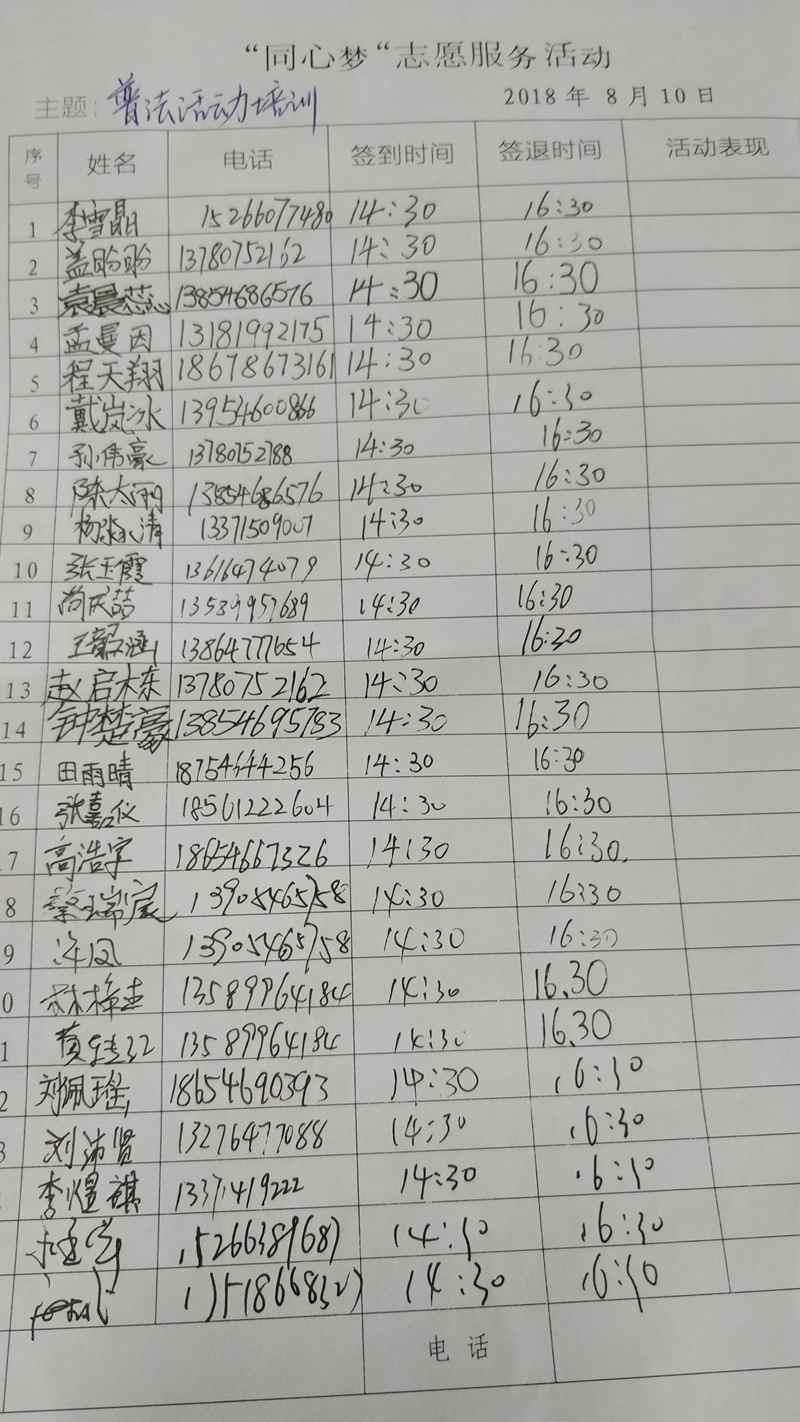 “同心梦“志愿服务活动
主题：普法活动培训 2018 年 8 月 10 日
序号 姓名 电话 签到时间 签退时间 活动表现
1 李雪晶 15266077480 14:30 16:30
2 盖盼盼 13780752162 14:30 16:30
3 袁晨蕊 13854686576 14:30 16:30
4 孟曼因 13181992175 14:30 16:30
5 程天翔 18678673161 14:30 16:30
6 戴岚冰 13954600866 14:30 16:30
7 孙伟豪 13780752788 14:30 16:30
8 陈大雨 13854686576 14:30 16:30
9 杨淑清 13371509007 14:30 16:30
10 张玉霞 13616474079 14:30 16:30
11 尚庆喆 13589957689 14:30 16:30
12 王韶涵 13864777654 14:30 16:30
13 赵启木东 13780752162 14:30 16:30
14 钟楚豪 13854695783 14:30 16:30
15 田雨晴 18754644256 14:30 16:30
16 张嘉仪 18561222604 14:30 16:30
7 高浩宇 18654667326 14:30 16:30.
8 瑞宸 13905465758 14:30 16:30
9 13905465758 14:30 16:30
0 13589964184 14:30 16.30
1 13589964184 14:30 16.30
2 刘佩瑶 18654690393 14:30 16:30
3 刘沛贤 13276477088 14:30 16:30
李煜祺 13371419222 14:30 16:30
14:30 16:30
14:30 16:30
电 话